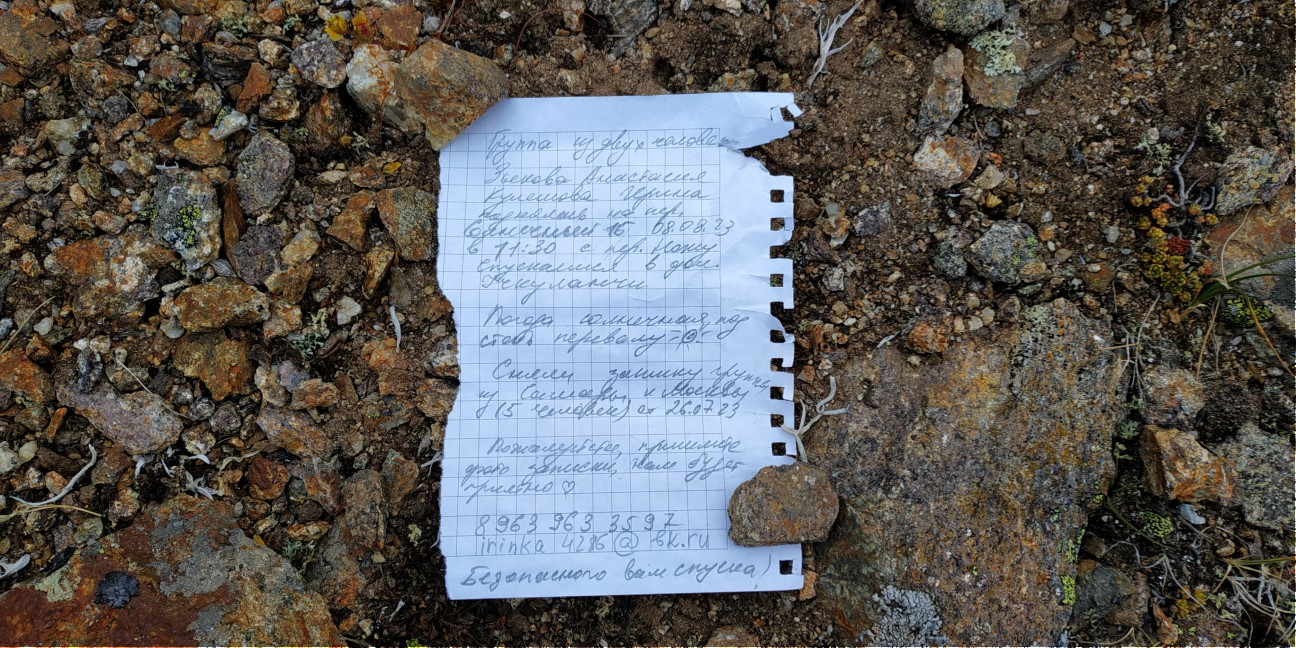 Группа из двух человек
Зыкова Анастасия
Кулешова Ирина
поднялась на пер.
Солнечный 1Б 08.08.23
в 11:30 с пер.
спускалися в дол.
Учкуланичи
Погода солнечная, под
стать перевалу =)
Сняли записку группы
из Самары и Москвы
(15 человек) от 26.07.23
Пожалуйста, пришлите
фото записки, нам будет
приятно ♡
8 963 963 3597
irinka 4286@bk.ru
Безопасного вам спуска)